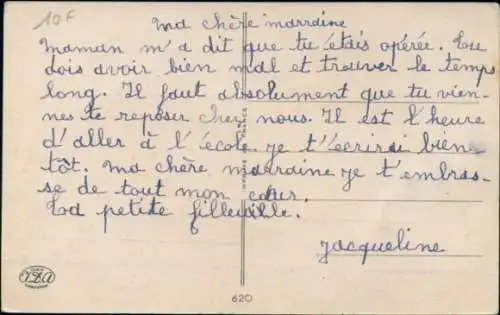 10F
ma chère marraine
maman m'a dit que tu étais opérée. Tu
dois avoir bien mal et trouver le temps
long. Il faut absolument que tu vien-
nes te reposer chez nous. Il est l'heure
d'aller à l'école je t'écrirai bien-
tôt. ma chère marraine je t'embras-
se de tout mon cœur.
Ta petite filleulle.
Jacqueline
620